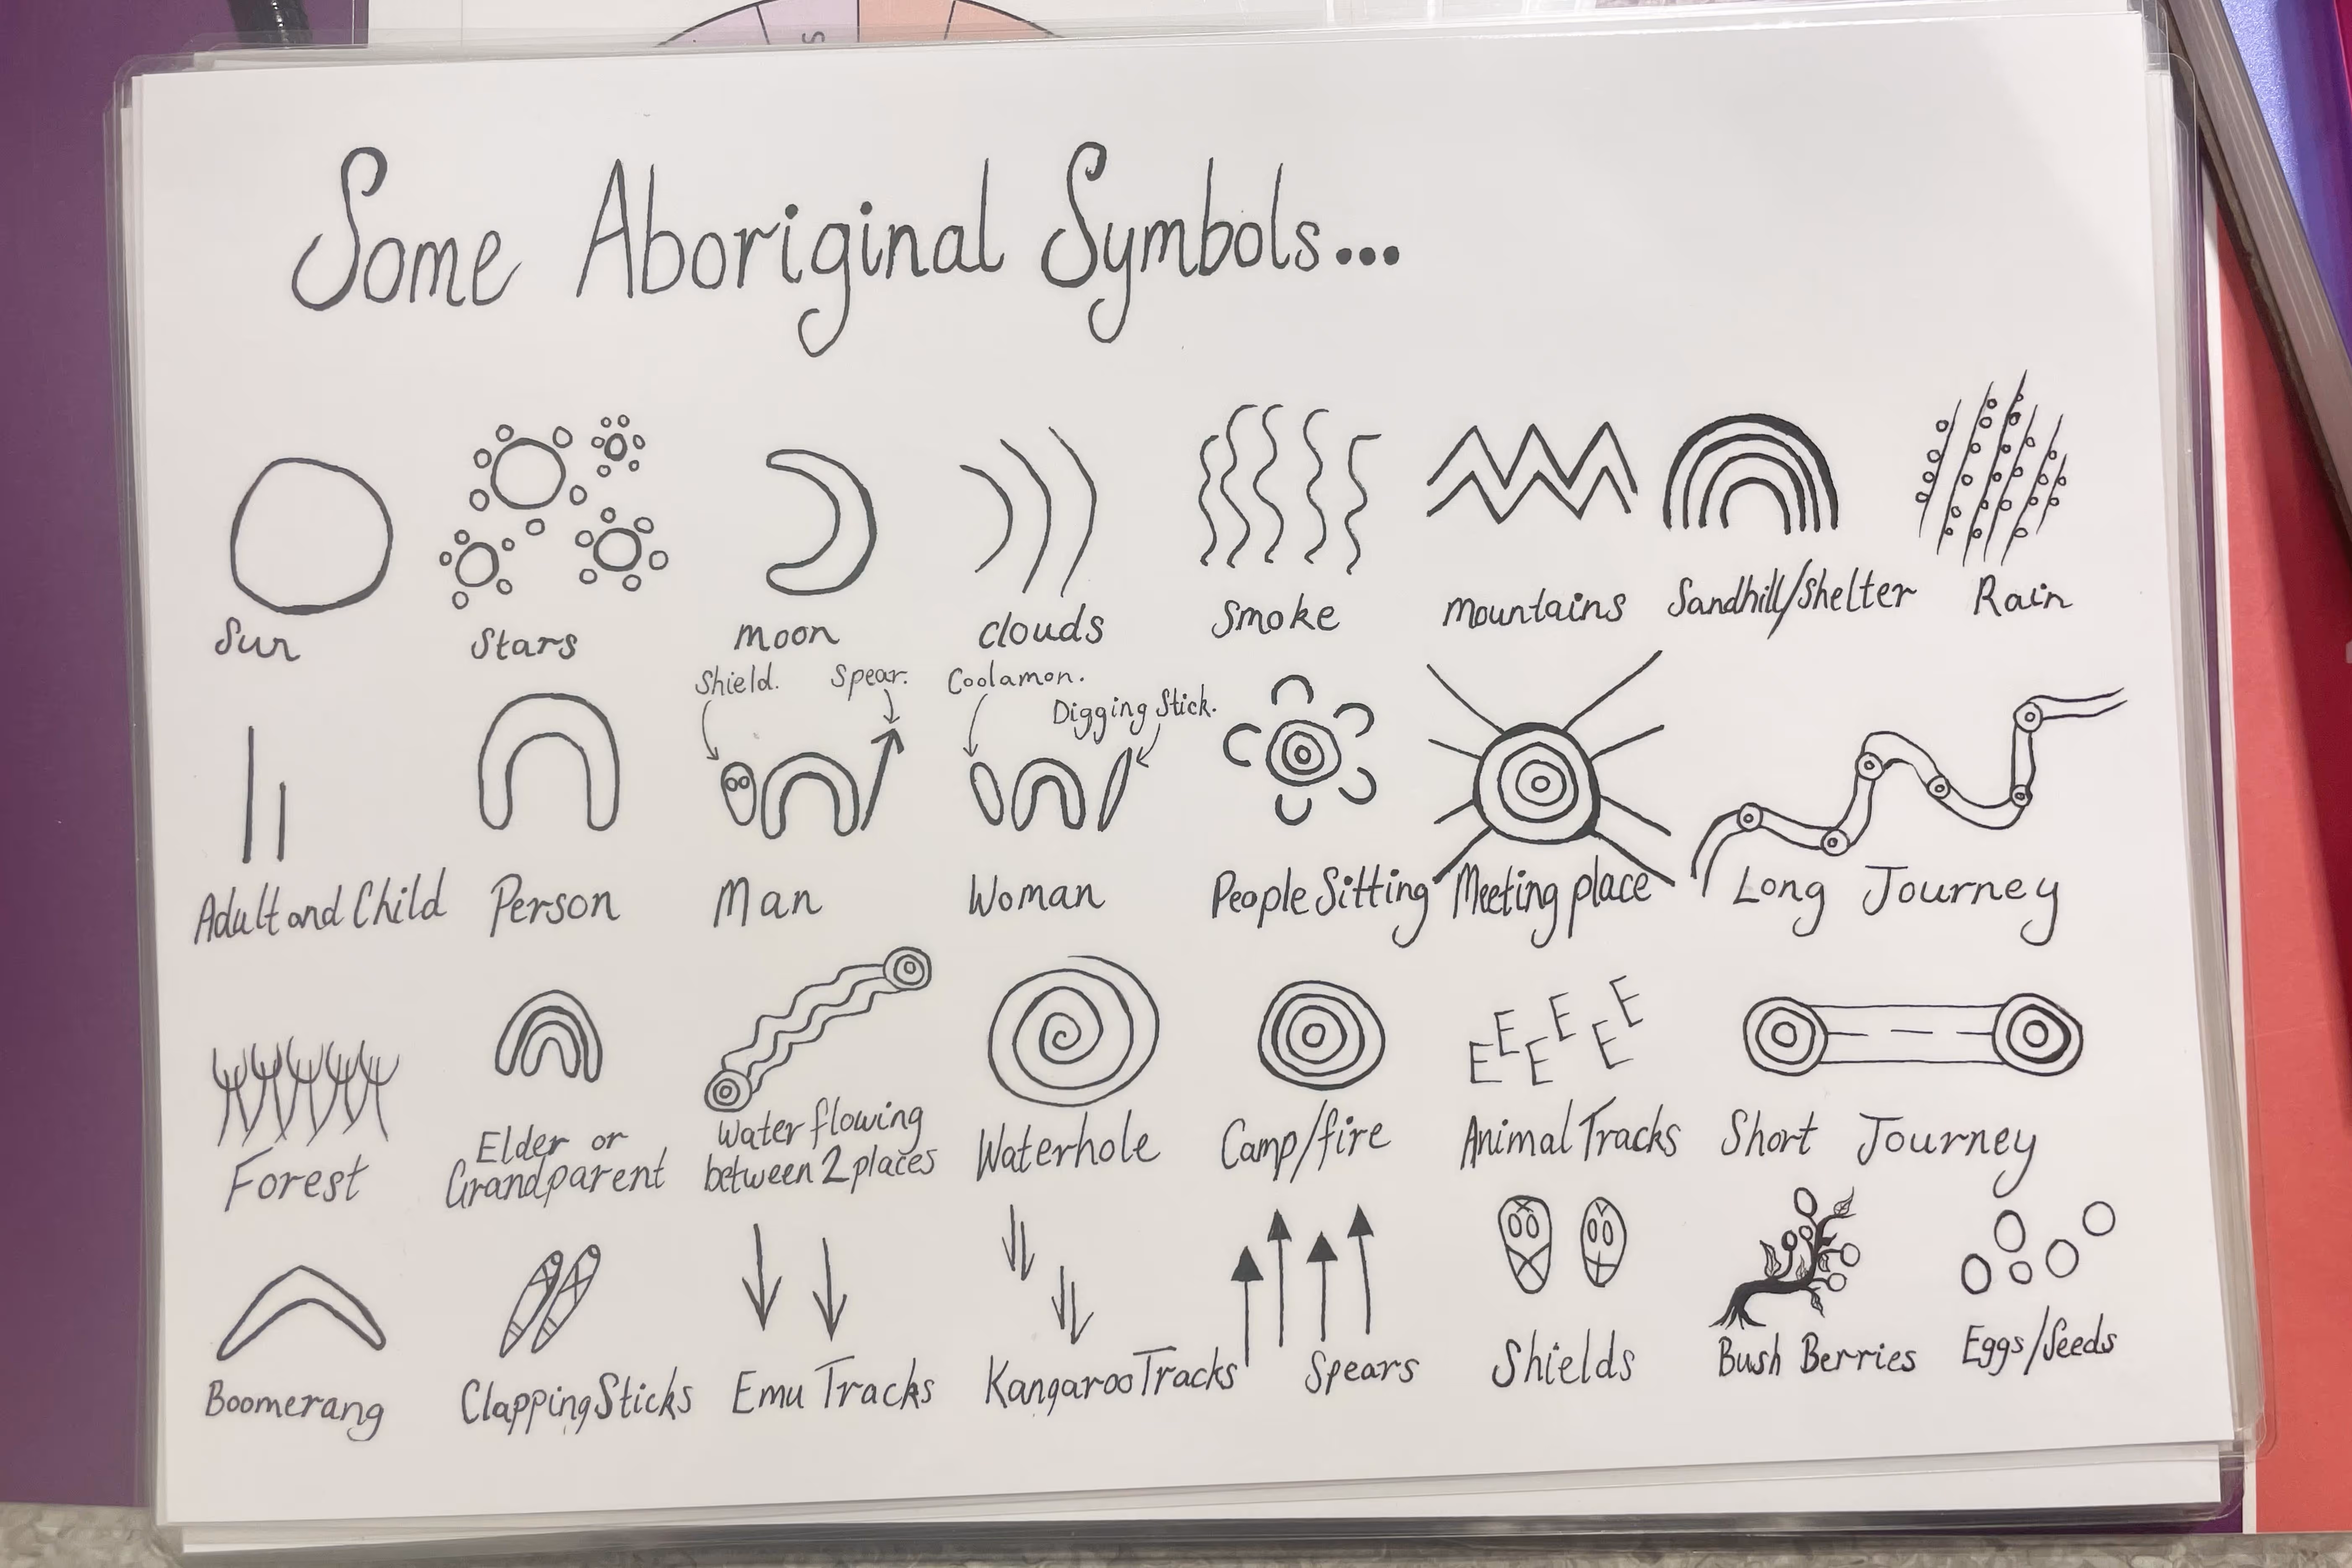 Some Aboriginal Symbols...
Sun
Stars
moon
clouds
Smoke
mountains
Sandhill/Shelter
Rain
Shield.
Spear.
Coolamon.
Digging Stick.
Adult and Child
Person
Man
Woman
People Sitting
Meeting place
Long Journey
Forest
Elder or
Grandparent
Water flowing
between 2 places
Waterhole
Camp/fire
Animal Tracks
Short Journey
Boomerang
Clapping Sticks
Emu Tracks
Kangaroo Tracks
Spears
Shields
Bush Berries
Eggs/Seeds